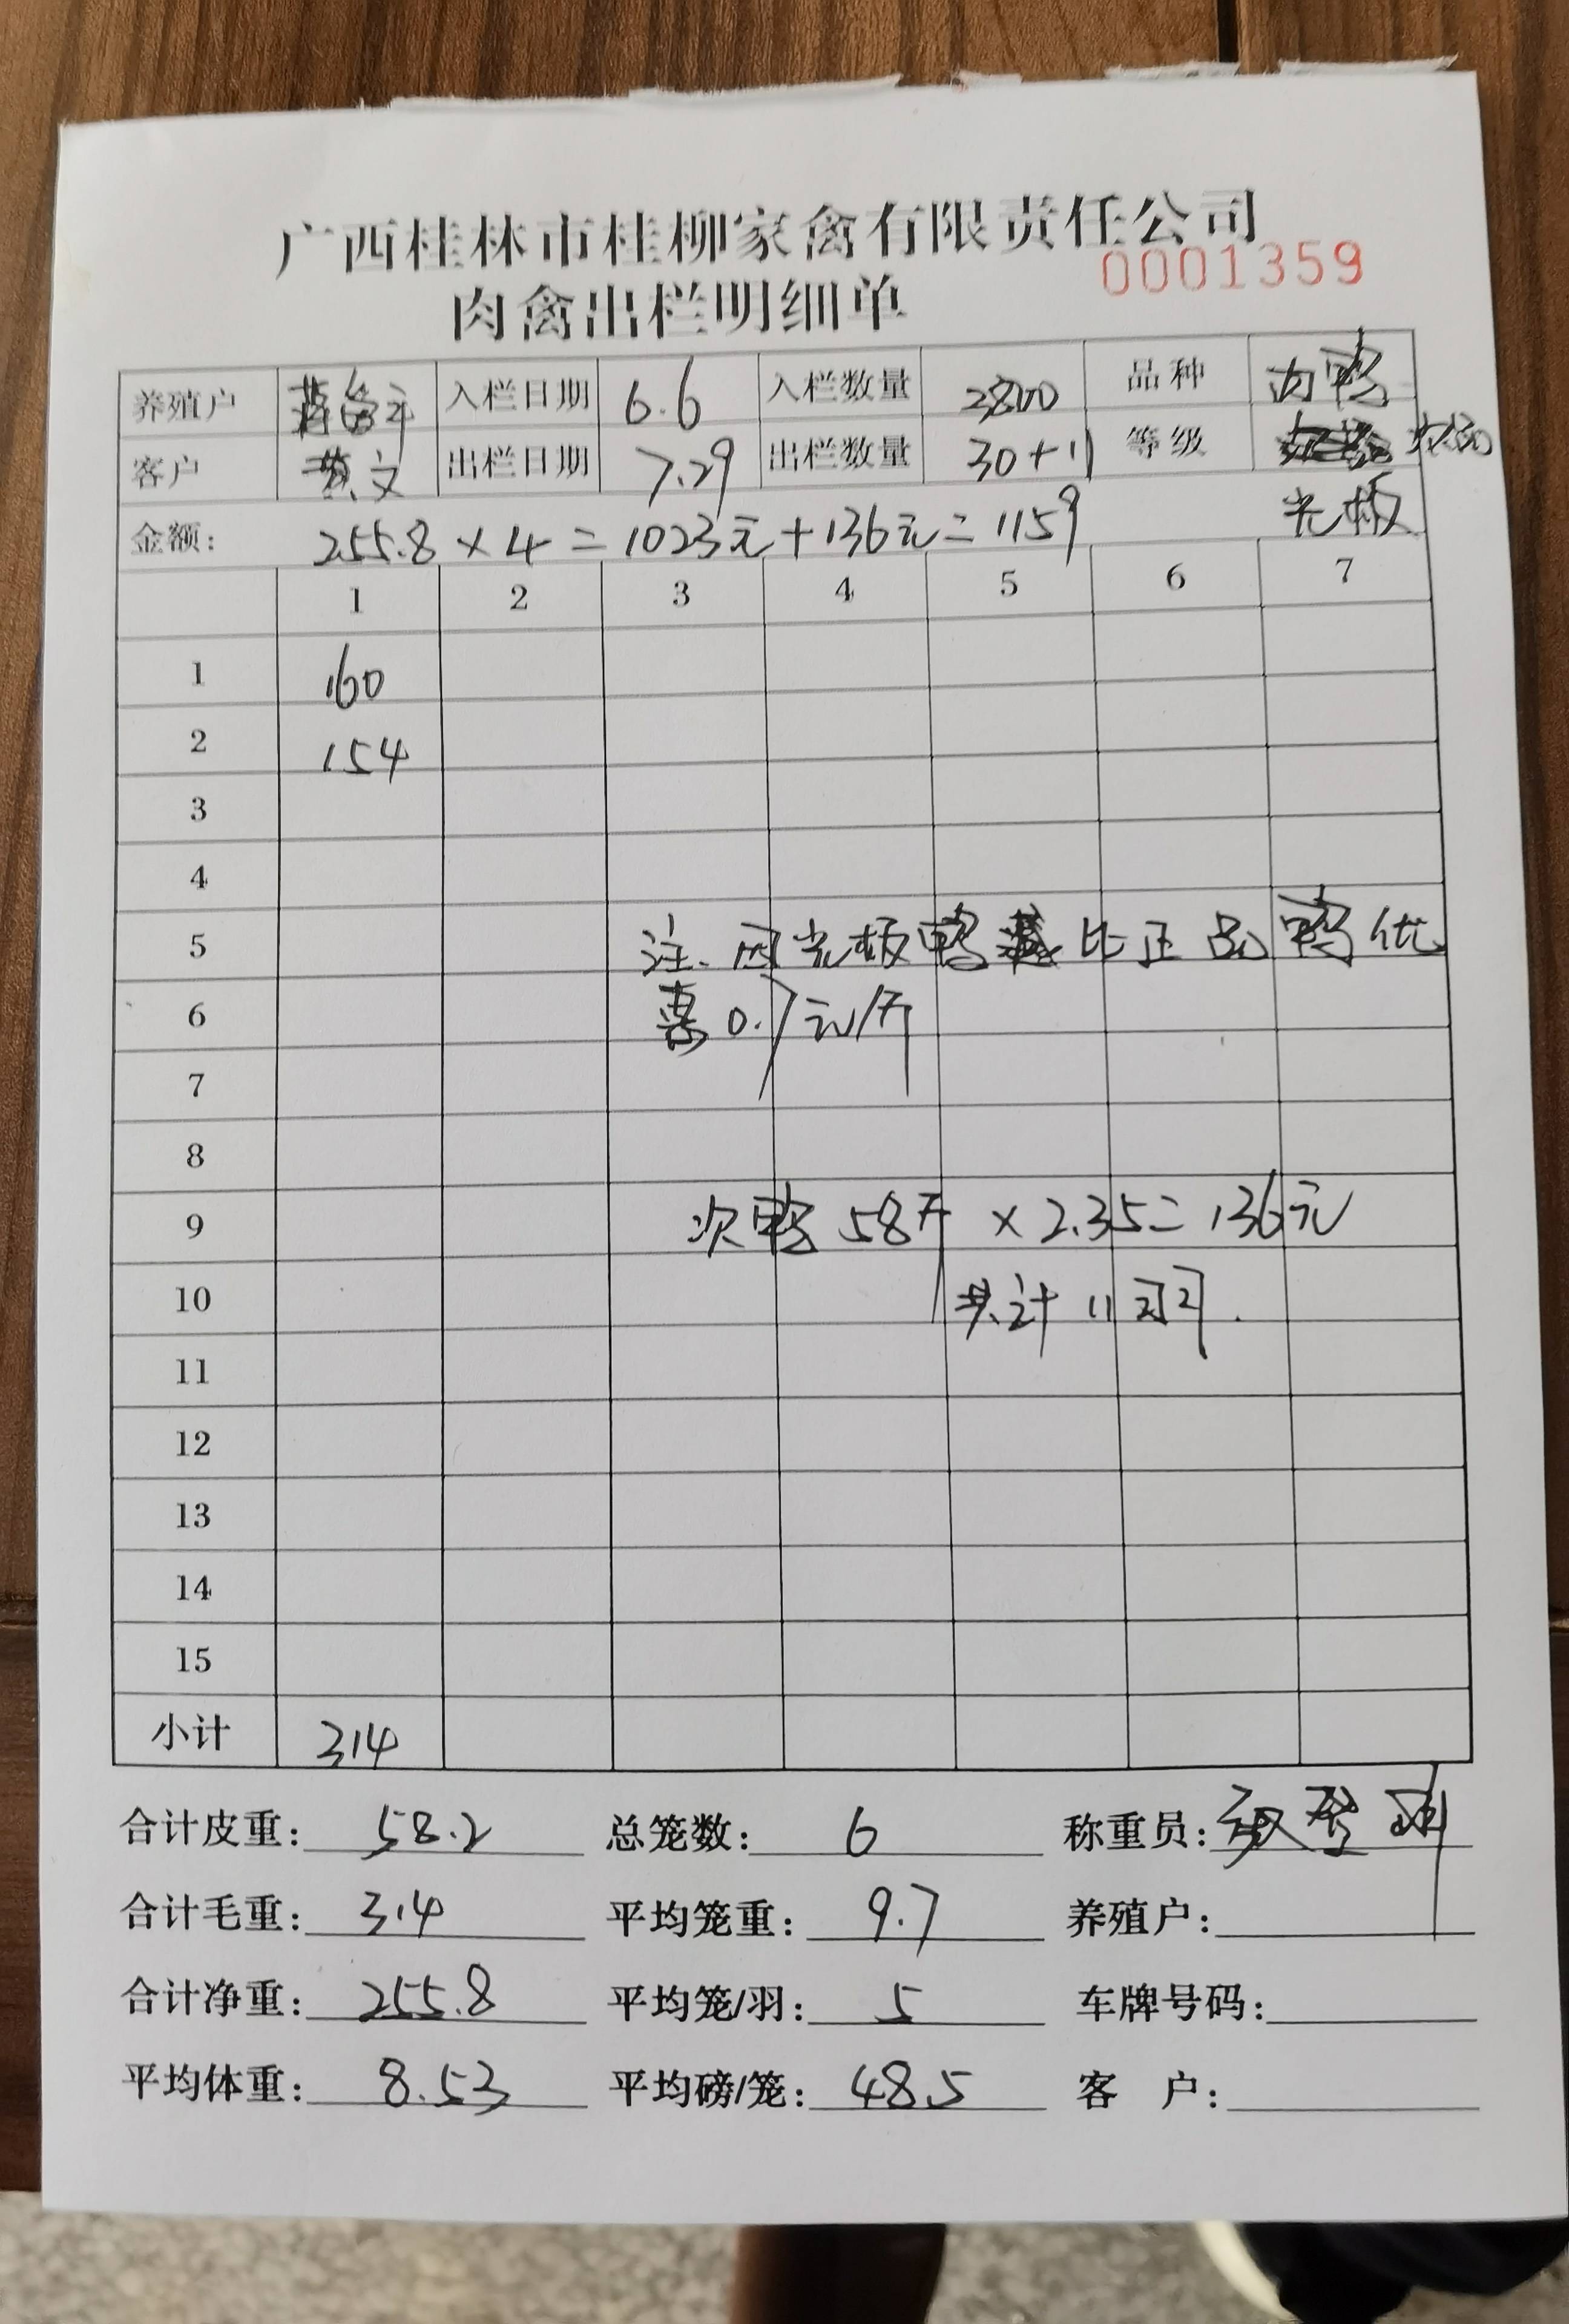 广西桂林市桂柳家禽有限责任公司
0001359
肉禽出栏明细单
养殖户 入栏日期 6.6 入栏数量 2800 品种 肉鸭
客户 文 出栏日期 7.29 出栏数量 30+11 等级 次品
光板
金额: 255.8×4=1023元+136元=1159
1 2 3 4 5 6 7
1 160
2 154
3
4
5 注、因光板鸭 比正品鸭优
6 惠0.7元/斤
7
8
9 次鸭58斤×2.35=136元
10 共计11羽.
11
12
13
14
15
小计 314
合计皮重: 58.2 总笼数: 6 称重员:
合计毛重: 314 平均笼重: 9.7 养殖户:
合计净重: 255.8 平均笼/羽: 5 车牌号码:
平均体重: 8.53 平均磅/笼: 48.5 客 户: